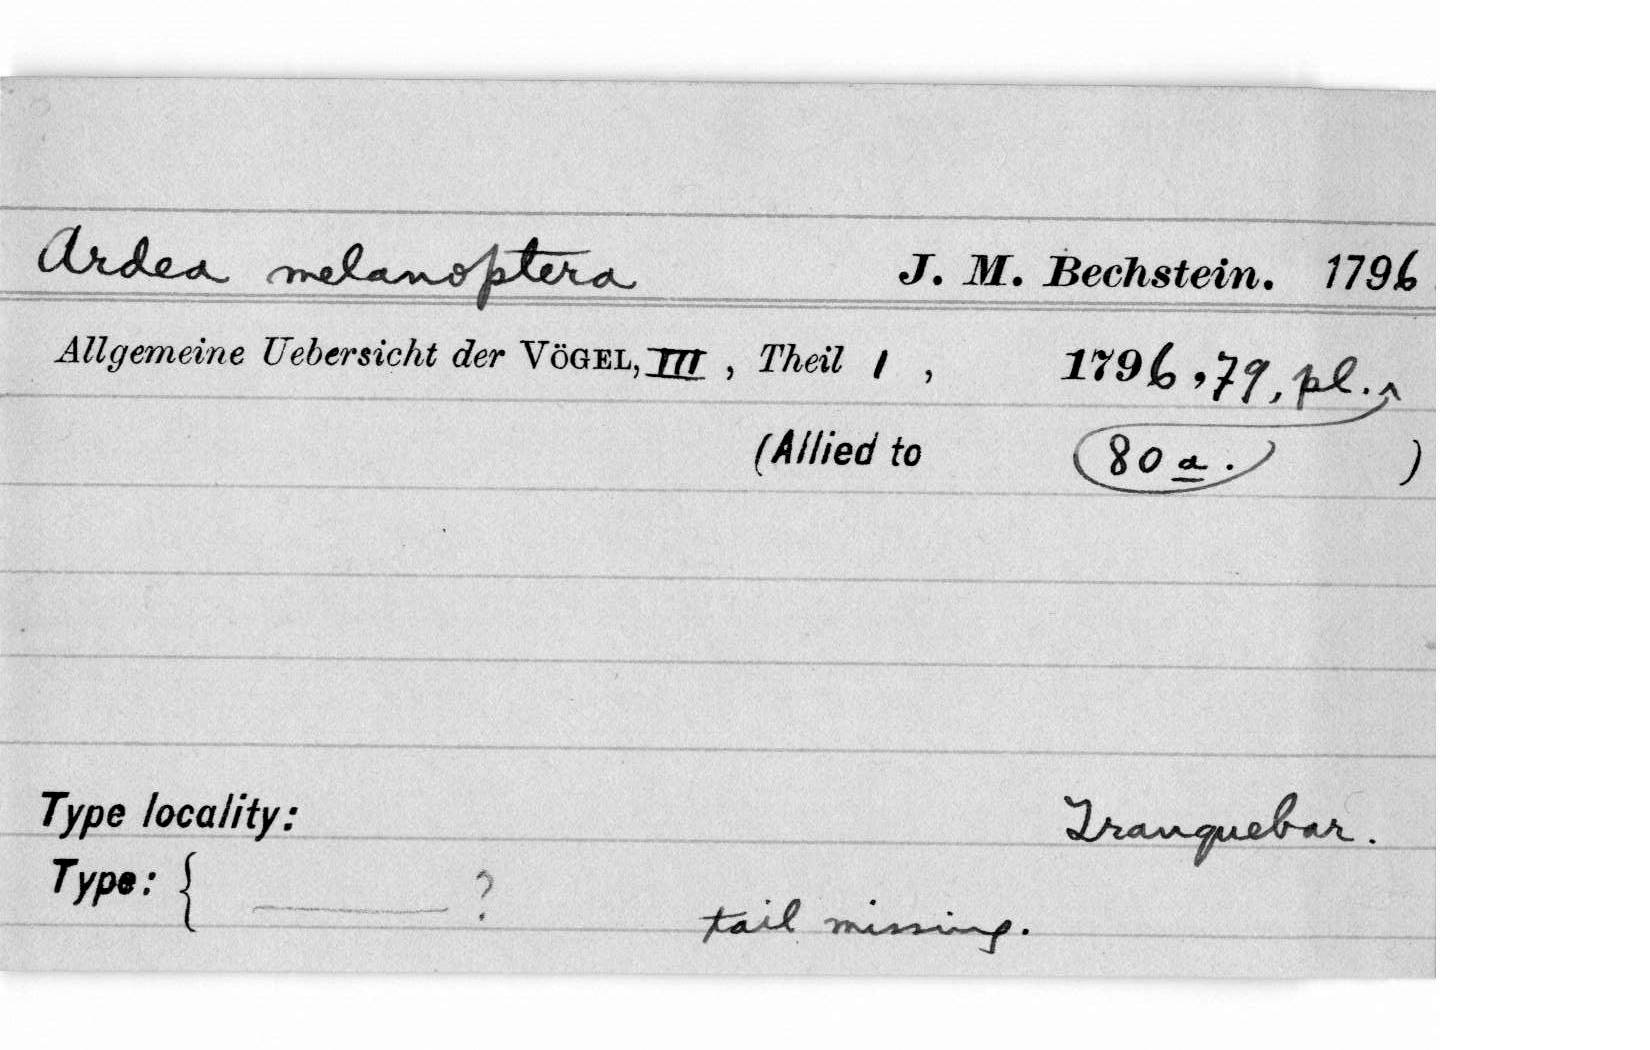 Ardea melanoptera J. M. Bechstein. 1796
Allgemeine Uebersicht der VÖGEL, III, Theil 1, 1796, 79, pl. ^
(Allied to 80 a. )
Type locality: Tranquebar.
Type: { ?
tail missing.